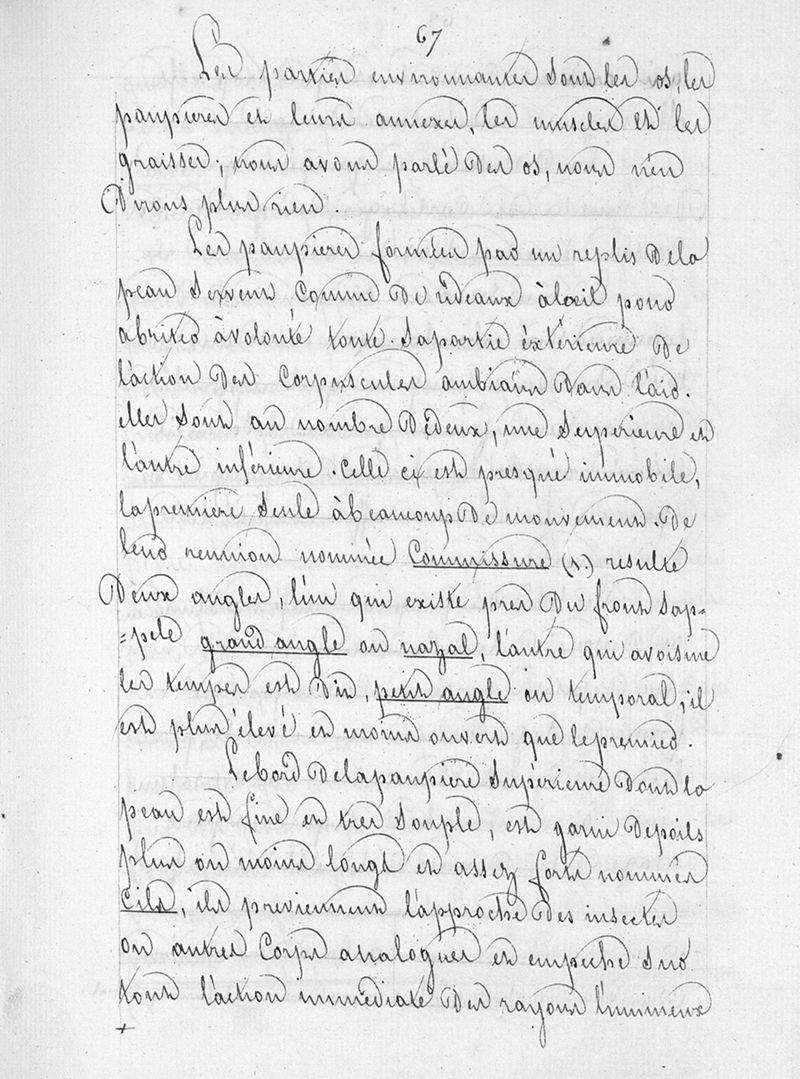 67
Les parties environnantes sont les os, les
paupieres et leurs annexes, les muscles et les
graisses; nous avons parlé des os, nous n'en
Dirons plus rien.
Les paupieres formées par un replis de la
peau servent comme de rideaux à l'oeil pour
abriter à volonté toute sa partie éxtérieure de
l'action des corpuscules ambians dans l'air.
elles sont au nombre de deux, une superieure et
l'autre inférieure. Celle ci est presque immobile,
la première seule à beaucoup de mouvement. De
leur reunion nommée Commissure (x) resulte
Deux angles, l'un qui existe pres du front s'ap=
=pele grand angle ou nazal, l'autre qui avoisine
les tempes est dit, petit angle ou temporal, il
est plus élevé et moins ouvert que le premier.
Le bord de la paupière supèrieure dont la
peau est fine et tres souple, est garni de poils
plus ou moins longs et assez forts nommés
Cils, ils previennent l'approche des insectes
ou autres Corps analogues et empeche sur
tout l'action immédiate des rayons lumineux
+